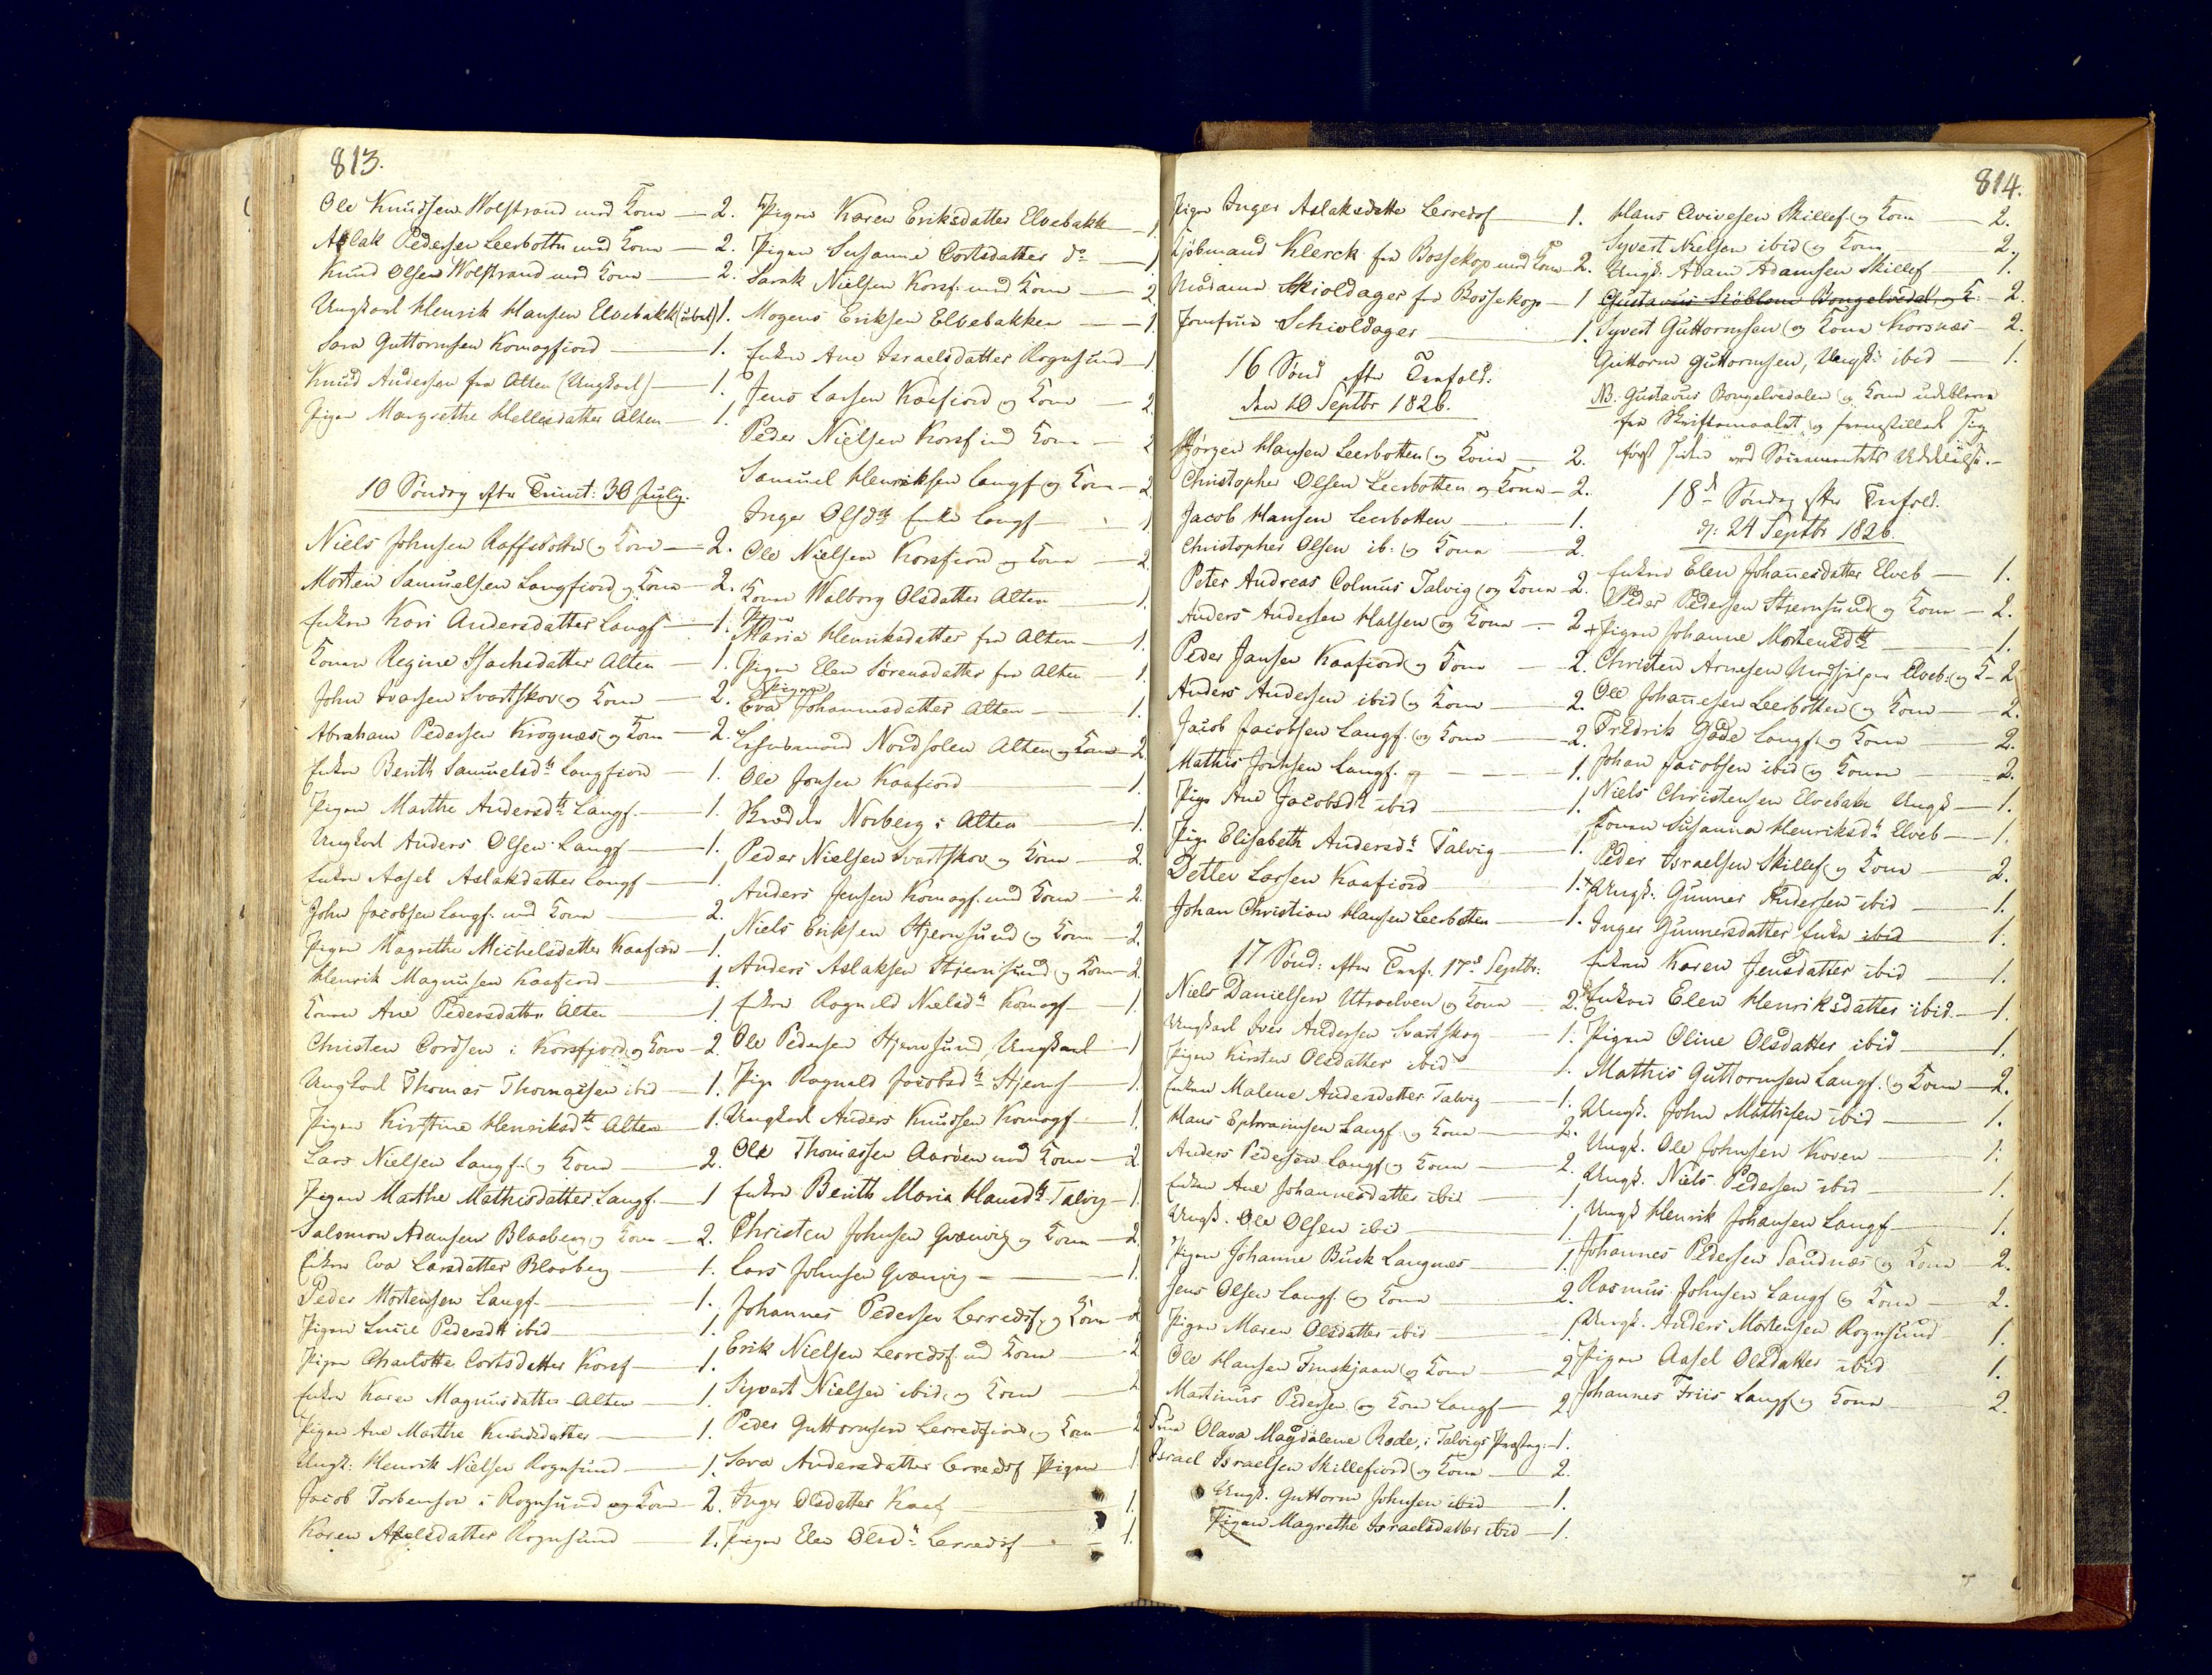 813.
Ole Knudsen Wolstrand med Kone — 2.
Aslak Pedersen Leerbotten med Kone — 2.
Knud Olsen Wolstrand med Kone — 2.
Ungkarl Henrik Hansen Elvebakk — 1.
Sara Guttormsen Komagfiord — 1.
Knud Andersen fra Alten (Ungkarl) — 1.
Pigen Margrethe Hellesdatter Alten — 1.
10 Søndag efter Trinit: 30 July.
Niels Johnsen Raffsbotn og Kone — 2.
Morten Samuelsen Langfiord og Kone — 2.
Enken Kari Andersdatter Langf — 1.
Konen Regine Isachsdatter Alten — 1.
John Ivarsen Svartskov og Kone — 2.
Abraham Pedersen Krognæs og Kone — 2.
Enken Berith Samuelsdtr Langfiord — 1.
Pigen Marthe Andersdtr Langf. — 1.
Ungkarl Anders Olsen Langf — 1.
Enken Aasel Aslakdatter Langf — 1.
John Jacobsen Langf. med Kone — 2.
Pigen Magrethe Michelsdatter Kaafiord — 1.
Henrik Magnusen Kaafiord — 1.
Konen Ane Pedersdatter Alten — 1.
Christen Cordsen i Korsfjord og Kone — 2.
Ungkarl Thomas Thomassen ibid — 1.
Pigen Kirstine Henriksdtr Alten — 1.
Lars Nielsen Langf. og Kone — 2.
Pigen Marthe Mathisdatter Langf. — 1
Salomon Adamsen Blaaberg og Kone — 2.
Enken Eva Larsdatter Blaaberg — 1.
Peder Mortensen Langf. — 1.
Pigen Lucie Pedersdtr ibid — 1.
Pigen Charlotte Cortsdatter Korsf — 1.
Enken Karen Magnusdatter Alten — 1.
Pigen Ane Marthe Knudsdatter — 1.
Ungk: Henrik Nielsen Rognsund — 1.
Jacob Torbensen i Rognsund og Kone — 2.
Karen Axelsdatter Rognsund — 1.
Pigen Karen Eriksdatter Elvebakk — 1
Pigen Susanne Cortsdatter do — 1
Sarak Nielsen Korsf. med Kone — 2
Mogens Eriksen Elvebakken — 1.
Enken Ane Israelsdatter Rognsund — 1.
Jens Larsen Kaafiord og Kone — 2.
Peder Nielsen Korsf med Kone — 2
Samuel Henriksen Langf og Kone — 2
Inger Olsdtr Enke Langf — 1
Ole Nielsen Korsfiord og Kone — 2
Konen Walborg Olsdatter Alten — 1.
Pigen
Maria Henriksdatter fra Alten — 1.
Pigen Elen Sørensdatter fra Alten — 1.
Pigen
Eva Johannesdatter Alten — 1.
Nordfolen Alten og Kone — 2
Ole Jonsen Kaafiord — 1.
Norberg i Alten — 1.
Peder Nielsen Svartskov og Kone — 2.
Anders Jensen Komagf. med Kone — 2.
Niels Eriksen Stjernsund og Kone — 2.
Anders Aslaksen Stjernsund og Kone — 2.
Enken Ragnild Nielsdtr Komagf — 1.
Ole Pedersen Stjernsund, Ungkarl — 1
Pige Ragnild Jacobsdtr Stjernsf — 1.
Ungkarl Anders Knudsen Komagf — 1.
Ole Thomassen Aarøen med Kone — 2
Enken Berith Maria Hansdtr Talvig — 1.
Christen Johnsen Qvænvig og Kone — 2.
Lars Johnsen Qvænvig — 1.
Johannes Pedersen Lerredsf. og Kone — 2
Erik Nielsen Lerredsf. med Kone — 2
Syvert Nielsen ibid. og Kone — 2
Peder Guttormsen Lerredsfiord og Kone — 2
Sara Andersdatter Lerredsf Pigen — 1
Inger Olsdatter Kaaf — 1.
Pigen Elen Olsdtr Lerredsf — 1.
814.
Pigen Inger Aslaksdatter Lerredsf — 1.
Kjöbmand Klerck fra Bossekop med Kone — 2.
Madame Skioldager fra Bossekop — 1
Jomfrue Schioldager — 1.
16 Sönd efter Trefold:
den 10 Septbr 1826.
Jørgen Hansen Leerbotten og Kone — 2.
Christopher Olsen Leerbotten og Kone — 2.
Jacob Hansen Leerbotten — 1.
Christopher Olsen ib: og Kone — 2.
Peter Andreas Colmus Talvig og Kone — 2.
Anders Andersen Halsen og Kone — 2
Peder Jansen Kaafiord og Kone — 2.
Anders Andersen ibid og Kone — 2.
Jacob Jacobsen Langf. og Kone — 2.
Mathis Johnsen Langf. — 1.
Pige Ane Jacobsdtr ibid — 1.
Pige Elisabeth Andersdtr Talvig — 1.
Detlev Larsen Kaafiord — 1.
Johan Christian Hansen Leerbotten — 1.
17 Sönd: efter Tref. 17de Septbr.
Niels Danielsen Utvælven og Kone — 2.
Ungkarl Iver Andersen Svartskog — 1.
Pigen Kirsten Olsdatter ibid — 1.
Enken Malene Andersdatter Talvig — 1.
Hans Ephraimsen Langf og Kone — 2.
Anders Pedersen Langf og Kone — 2.
Enken Ane Johannesdatter ibid — 1.
Ungk. Ole Olsen ibid — 1
Pigen Johanne Buck Langnæs — 1.
Jens Olsen Langf. og Kone — 2.
Pigen Maren Olsdatter ibid — 1.
Ole Hansen Finskjaan og Kone — 2
Martinus Pedersen og Kone Langf — 2
Frue Olava Magdalene Rode, i Talvigs Præstegj. — 1.
Israel Israelsen Skillefiord og Kone — 2.
Ungk. Guttorm Johnsen ibid — 1.
Pigen Magrethe Israelsdatter ibid — 1.
Hans Avivesen Skillef. og Kone — 2.
Syvert Nielsen ibid og Kone — 2.
Ungk. Adam Adamsen Skillef — 1.
Gustavus Siøblom Bongelvedal, og K. — 2.
Syvert Guttormsen og Kone Korsnæs — 2.
Guttorm Guttormsen, Ungk: ibid — 1.
NB. Gustavus Bongelvedalen og Kone udebleve
fra Skriftemaalet, og fremstillede sig
først siden ved Sacramentets Uddeelelse.—
18de Søndag efter Trefold.
d: 24 Septbr 1826.
Enken Elen Johannesdatter Elveb — 1.
Peder Pedersen Stjernsund og Kone — 2.
+ Pigen Johanne Mortensdtr — 1.
Christen Arnesen Elveb: og K — 2
Ole Johannesen Leerbotten og Kone — 2.
Fredrik Gäde Langf. og Kone — 2.
Johan Jacobsen ibid og Kone — 2.
Niels Christensen Elvebak Ungk — 1.
Konen Susanna Henriksdtr Elveb — 1.
Peder Israelsen Skillef og Kone — 2.
+ Ungk: Gunner Andersen ibid — 1.
Inger Gunnersdatter Enke ibid — 1.
Enken Karen Jensdatter ibid — 1.
Enken Elen Henriksdatter ibid — 1.
Pigen Oline Olsdatter ibid — 1.
Mathis Guttormsen Langf. og Kone — 2.
Ungk. John Mathisen ibid — 1.
Ungk. Ole Johnsen Koven — 1.
Ungk. Niels Pedersen ibid — 1.
Ungk Henrik Johansen Langf — 1.
Johannes Pedersen Sandnæs og Kone — 2.
Rasmus Johnsen Langf og Kone — 2.
Ungk. Anders Mortensen Rognsund 1.
Pigen Aasel Olsdatter ibid 1.
Johannes Friis Langf og Kone — 2.